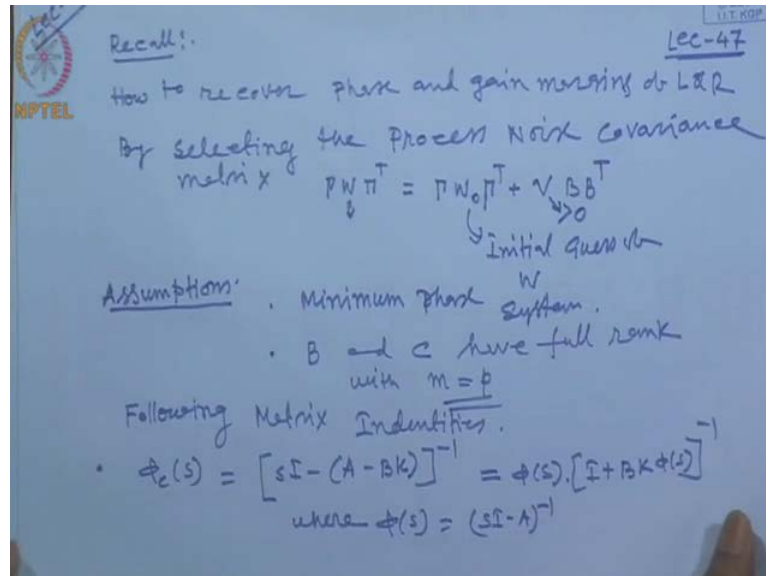 I.I.T. KGP
Lec-47
NPTEL
Recall:
How to recover phase and gain margins of LQR
By selecting the Process Noise covariance
matrix ΓWΓᵀ = ΓW₀Γᵀ + V BBᵀ
>0
Initial Guess of
W
Assumptions: . Minimum phase system.
. B and C have full rank
with m = p
Following Matrix Indentities.
. Φc(s) = [sI-(A-BK)]⁻¹ = Φ(s).[I+BKΦ(s)]⁻¹
where Φ(s) = (sI-A)⁻¹